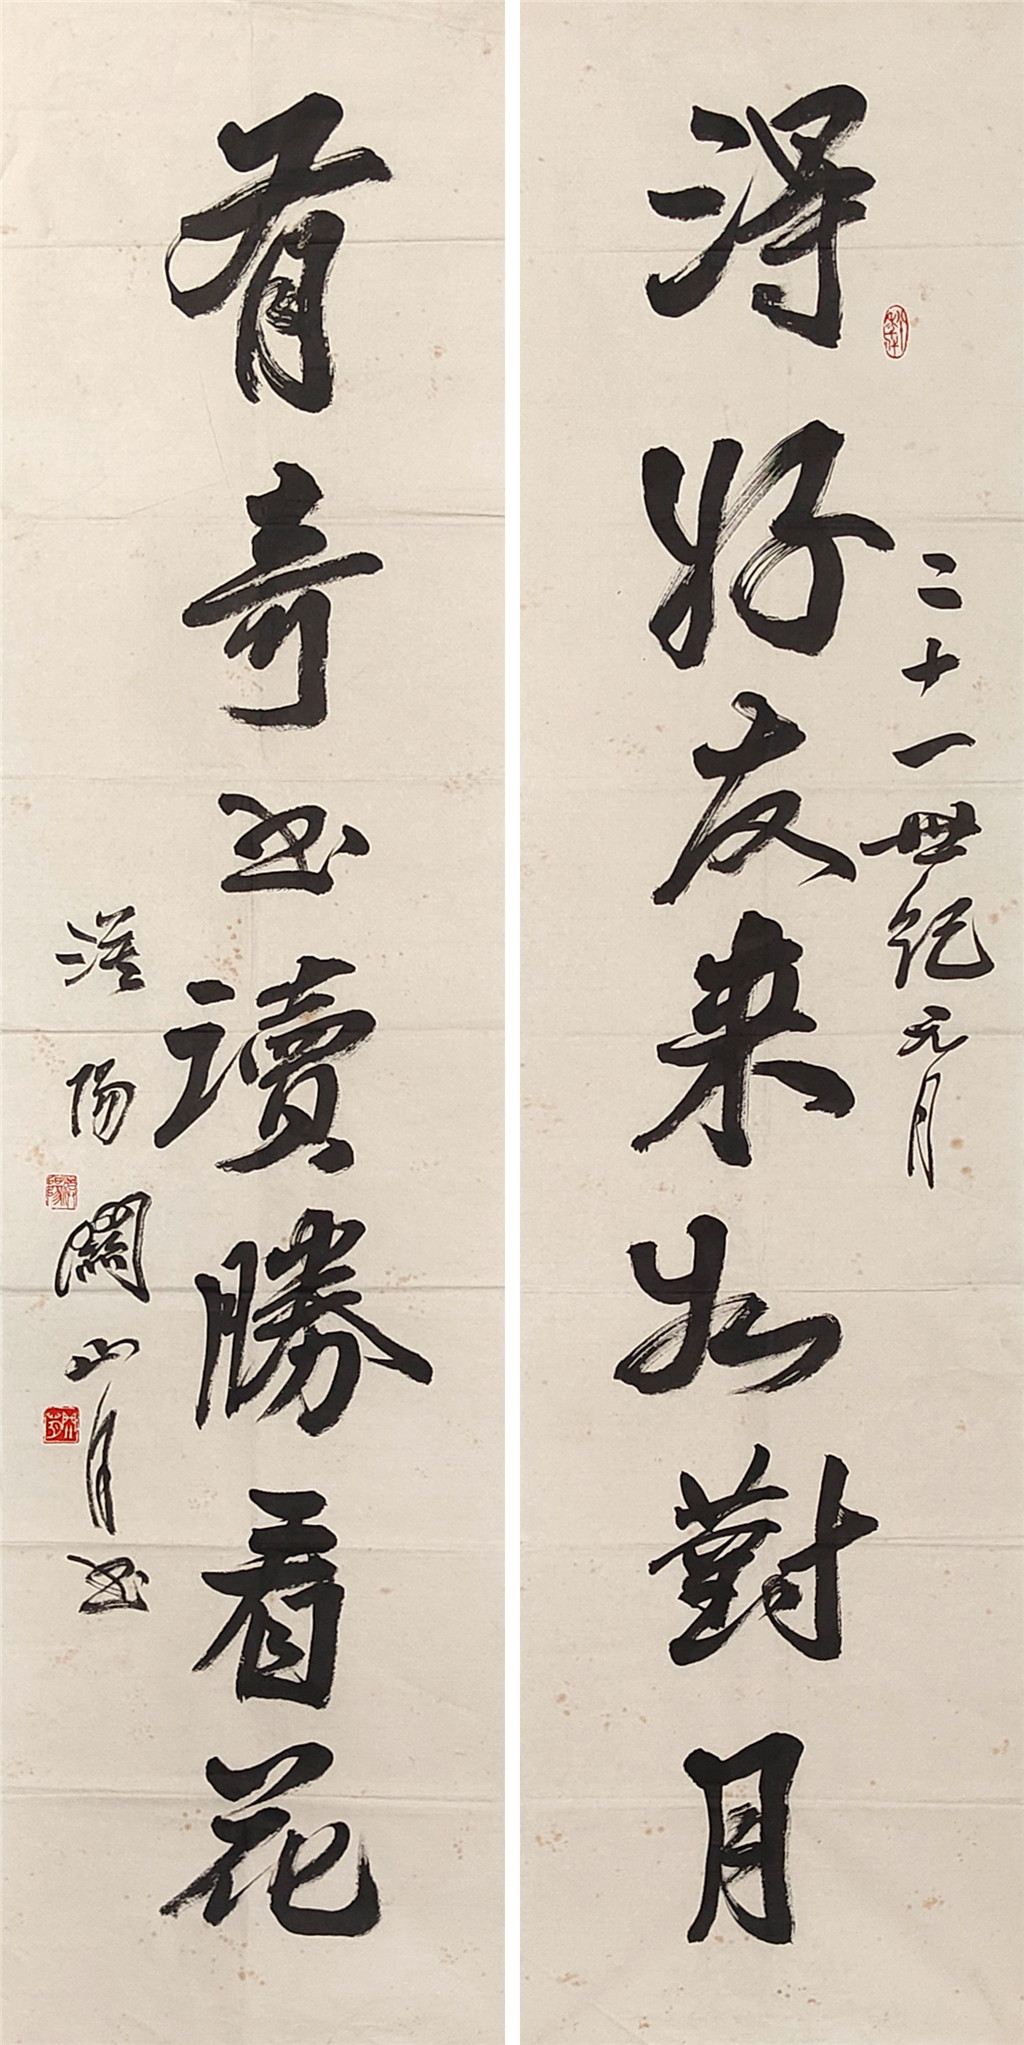 得好友来如對月
二十一世紀元月
有奇书讀勝看花
漠陽關山月书